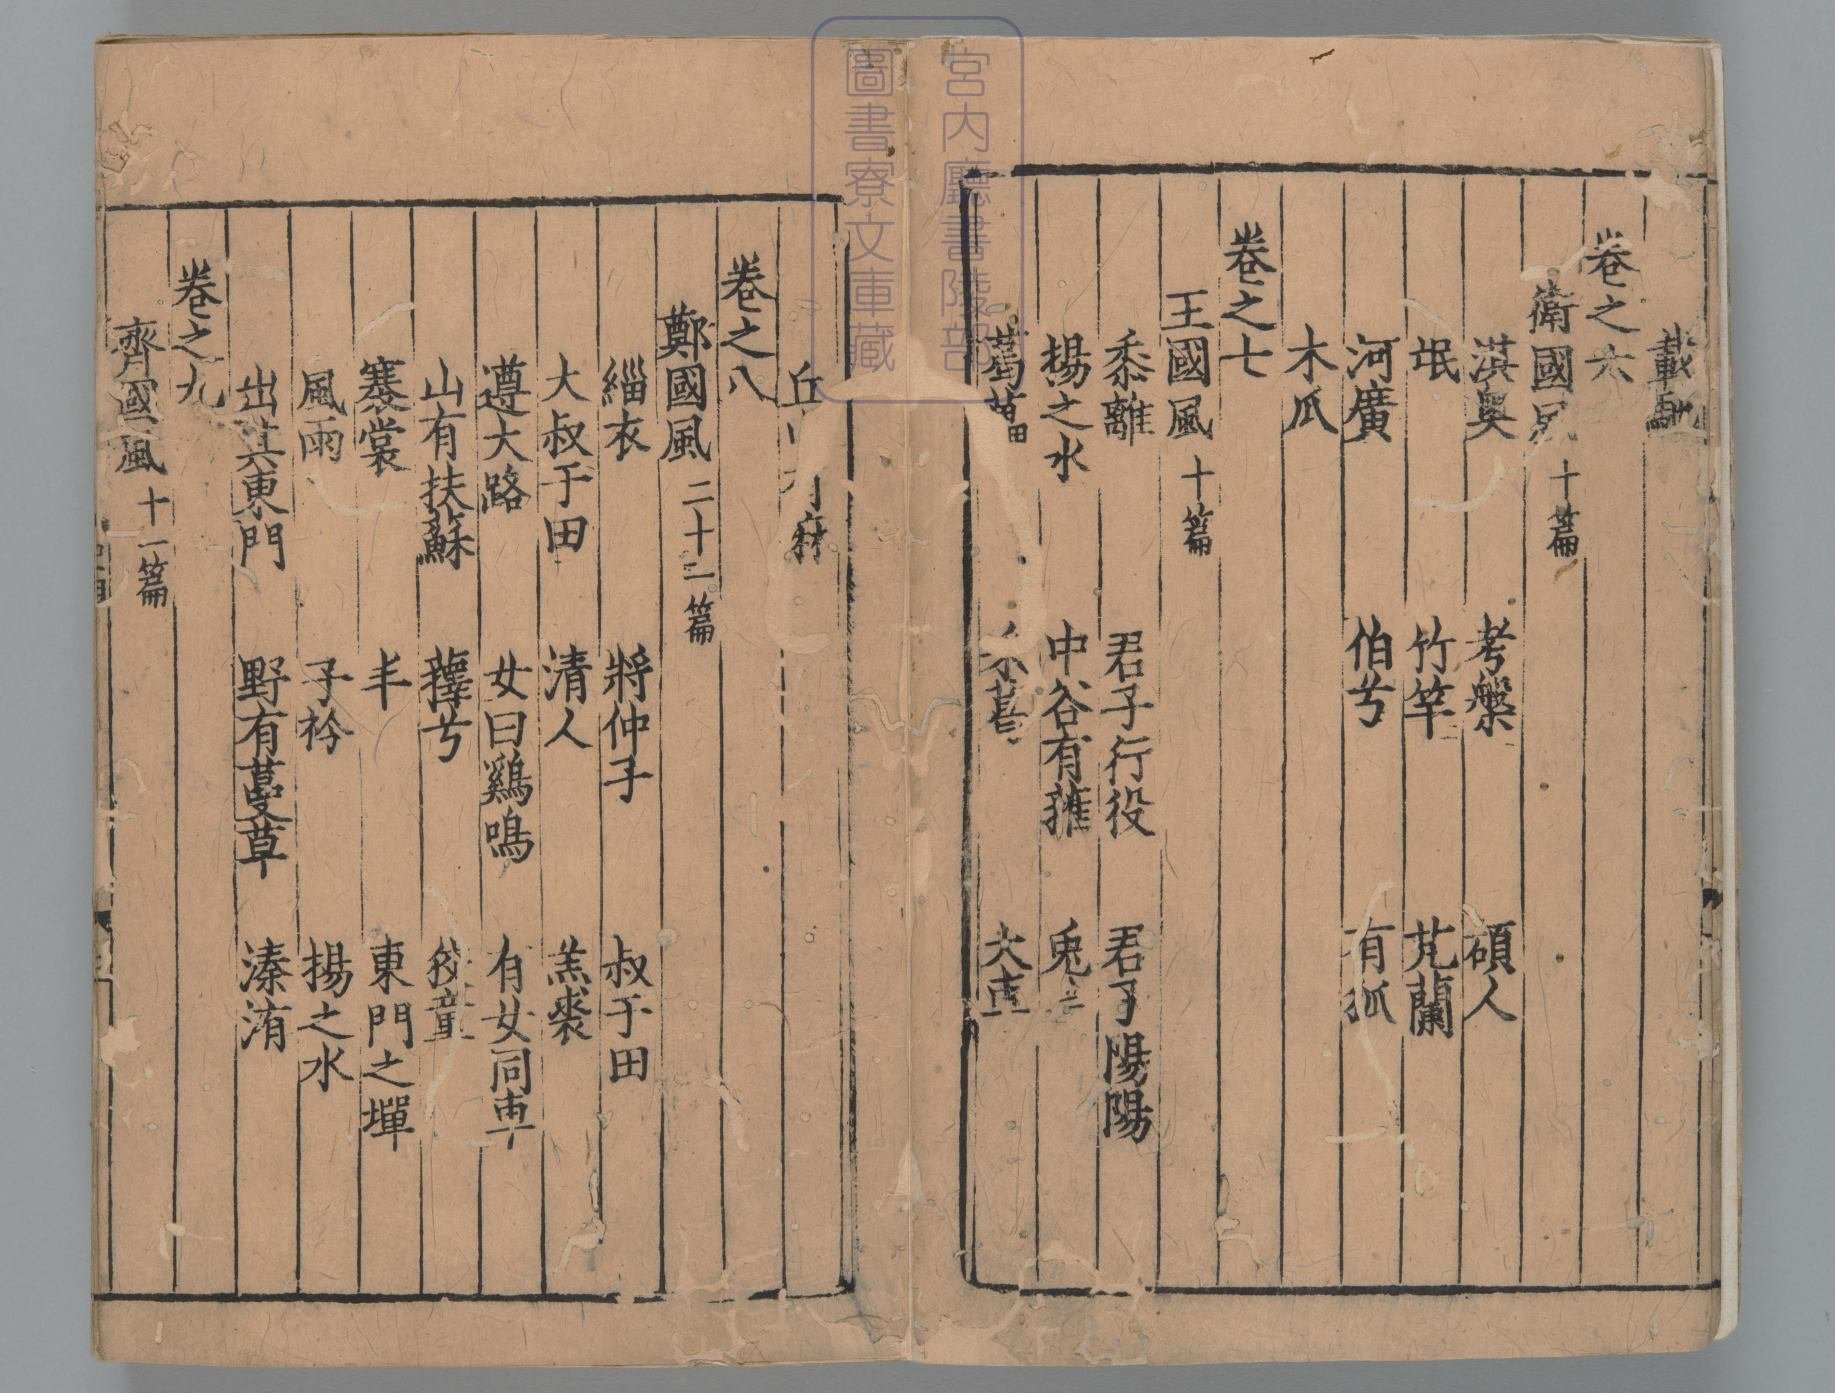 載馳
卷之六
衛國風 十篇
淇奧 考槃 碩人
氓 竹竿 芄蘭
河廣 伯兮 有狐
木瓜
卷之七
王國風 十篇
黍離 君子行役 君子陽陽
揚之水 中谷有蓷 兎
葛藟 采葛 大車
丘 有麻
卷之八
鄭國風 二十一篇
緇衣 將仲子 叔于田
大叔于田 清人 羔裘
遵大路 女曰鷄鳴 有女同車
山有扶蘇 蘀兮 狡童
褰裳 丰 東門之墠
風雨 子衿 揚之水
出其東門 野有蔓草 溱洧
卷之九
齊國風 十一篇
宮内廳書陵部
圖書寮文庫藏